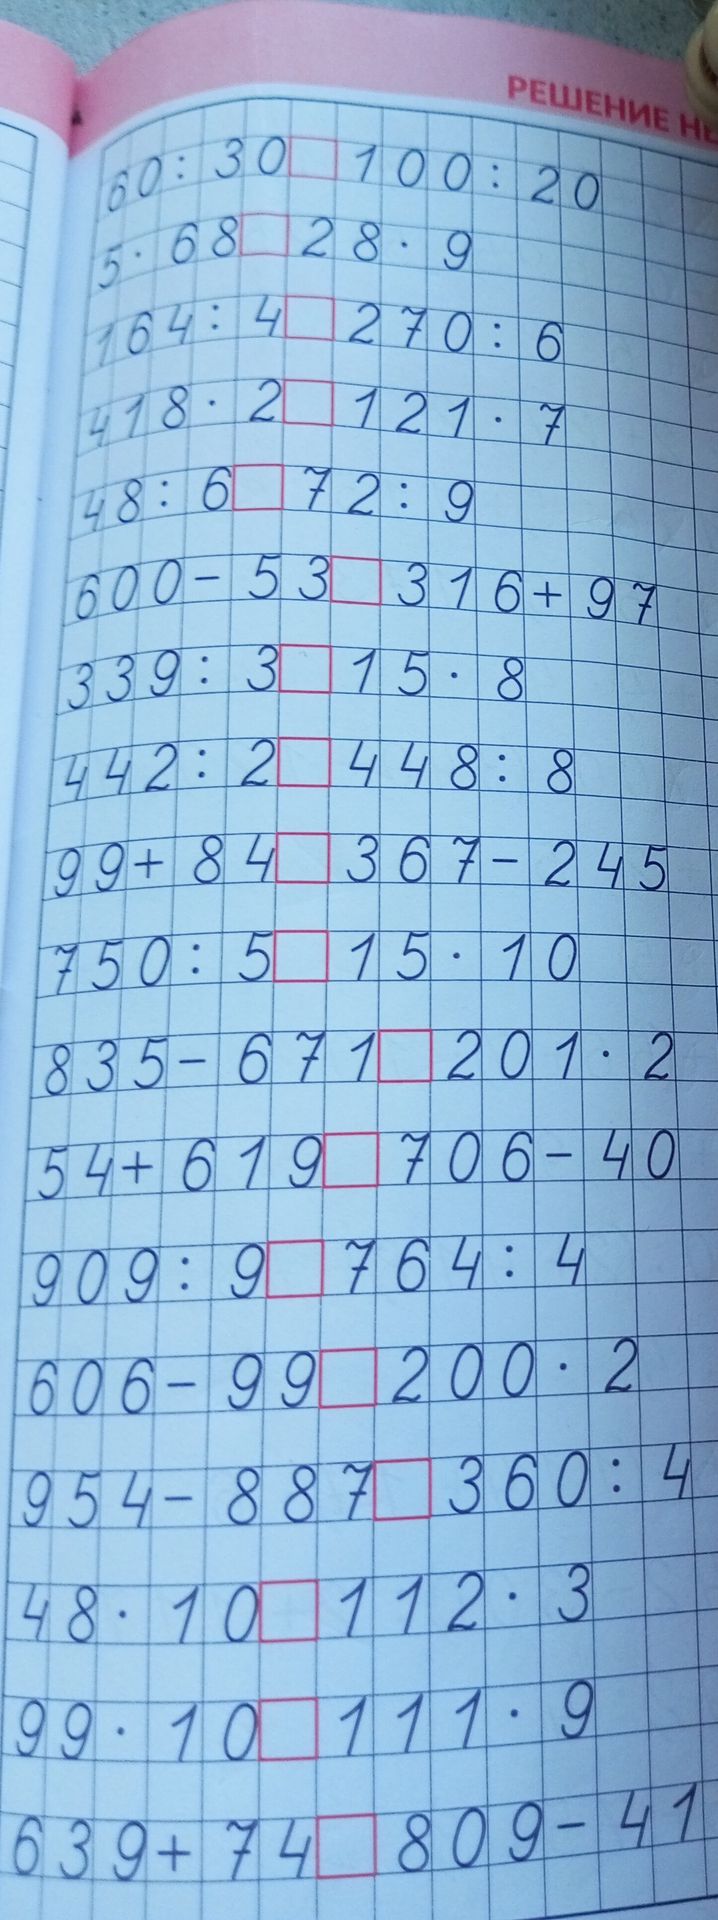 РЕШЕНИЕ
60:30□100:20
5·68□28·9
164:4□270:6
418·2□121·7
48:6□72:9
600-53□316+97
339:3□15·8
442:2□448:8
99+84□367-245
750:5□15·10
835-671□201·2
54+619□706-40
909:9□764:4
606-99□200·2
954-887□360:4
48·10□112·3
99·10□111·9
639+74□809-41